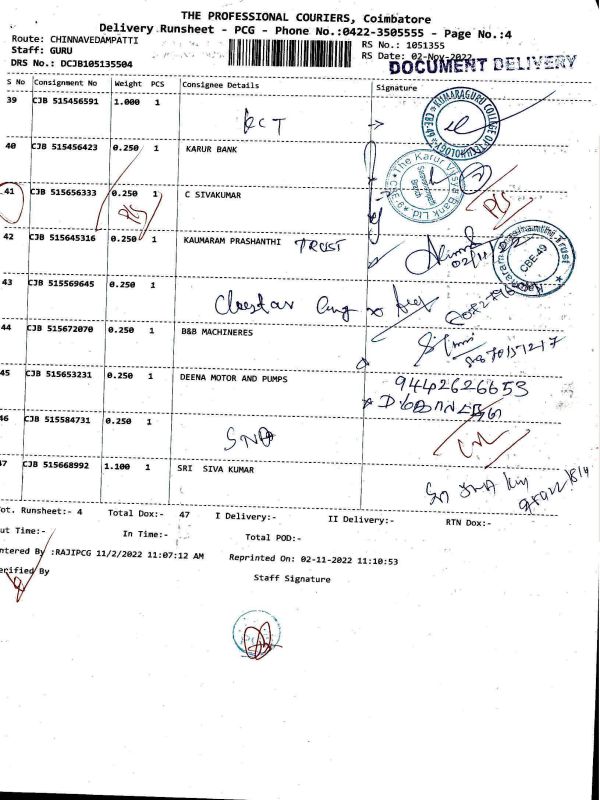 THE PROFESSIONAL COURIERS, Coimbatore
Delivery Runsheet - PCG - Phone No.:0422-3505555 - Page No.:4
Route: CHINNAVEDAMPATTI
RS No.: 1051355
Staff: GURU
RS Date: 02-Nov-2022
DRS No.: DCJB105135504
DOCUMENT DELIVERY
S No Consignment No Weight PCS Consignee Details Signature
39 CJB 515456591 1.000 1
KCT
KUMARAGURU COLLEGE OF TECHNOLOGY CBE-49
40 CJB 515456423 0.250 1 KARUR BANK
The Karur Vysya Bank Ltd
41 CJB 515656333 0.250 1 C SIVAKUMAR
42 CJB 515645316 0.250 1 KAUMARAM PRASHANTHI TRUST
02/11/22
CBE-49
43 CJB 515569645 0.250 1
44 CJB 515672070 0.250 1 B&B MACHINERES
45 CJB 515653231 0.250 1 DEENA MOTOR AND PUMPS
9442626653
46 CJB 515584731 0.250 1
47 CJB 515668992 1.100 1 SRI SIVA KUMAR
ot. Runsheet:- 4 Total Dox:- 47 I Delivery:- II Delivery:- RTN Dox:-
ut Time:- In Time:- Total POD:-
ntered By :RAJIPCG 11/2/2022 11:07:12 AM Reprinted On: 02-11-2022 11:10:53
erified By
Staff Signature